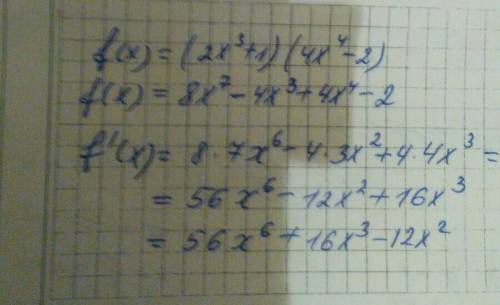 f(x) = (2x³+1)(4x⁴-2)
f(x) = 8x⁷-4x³+4x⁴-2
f'(x) = 8·7x⁶-4·3x²+4·4x³=
= 56x⁶-12x²+16x³
= 56x⁶+16x³-12x²